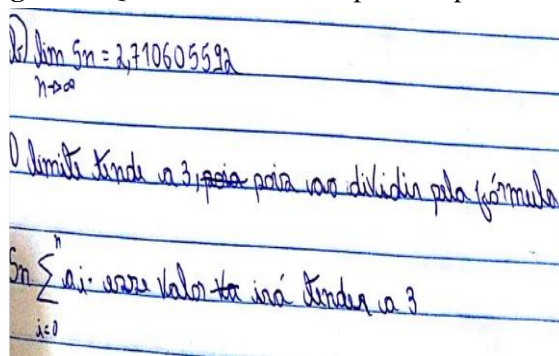 b) lim Sn = 2,710605592
n→∞
O limite tende a 3, poia pois ao dividir pela fórmula
n
Sn ∑ ai. esse valor ta irá tender a 3
i=0